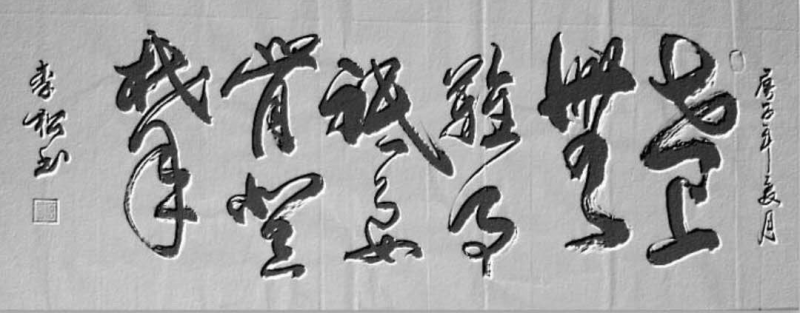 庚子年夏月
世上
无
难事
只要
肯登
攀
李松书